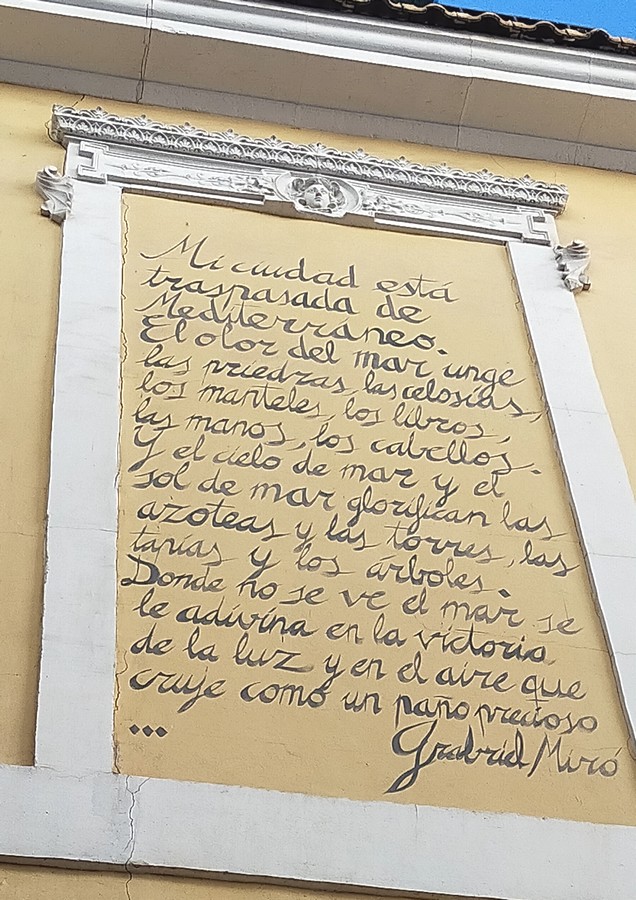 Mi ciudad está
traspasada de
Mediterráneo.
El olor del mar unge
las piedras, las celosías,
los manteles, los libros,
las manos, los cabellos.
Y el cielo de mar y el
sol de mar glorifican las
azoteas y las torres, las
tapias y los árboles.
Donde no se ve el mar se
le adivina en la victoria
de la luz y en el aire que
cruje como un paño precioso
...
Grabriel Miró